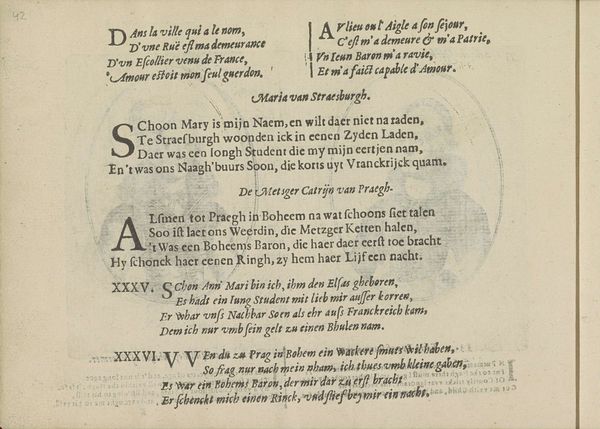 42
Dans la ville qui a le nom,
D'vne Ruë est ma demeurance
D'vn Escollier venu de France,
Amour estoit mon seul guerdon.
AV lieu ou l'Aigle a son sejour,
C'est m'a demeure & m'a Patrie,
Vn Ieun Baron m'a ravie,
Et m'a faict capable d'Amour.
Maria van Straesburgh.
SChoon Mary is mijn Naem, en wilt daer niet na raden,
Te Straesburgh woonden ick in eenen Zyden Laden,
Daer was een Iongh Student die my mijn eertjen nam,
En 't was ons Naagh'buurs Soon, die korts uyt Vranckrijck quam.
De Metsger Catrijn van Praegh.
ALsmen tot Praegh in Boheem na wat schoons siet talen
Soo ist laet ons Weerdin, die Metzger Ketten halen,
't Was een Boheems Baron, die haer daer eerst toe bracht
Hy schonck haer eenen Ringh, zy hem haer Lijf een nacht.
XXXV. SChon Ann' Mari bin ich, ihm den Elsas gheboren,
Es hadt ein Iung Student mit lieb mir ausser korren,
Er whar vnss Nachbar Soen als ehr auss Franckreich kam,
Dem ich nur vmb sein gelt zu einen Bhulen nam.
XXXVI. VVEn du zu Prag in Bohem ein Wackere smuts wil haben,
So frag nur nach mein nham, ich thues vmb kleine gaben,
Es War ein Bohems Baron, der mir dar zu erst bracht
Er schenckt mich einen Rinck, vnd slief bey mir ein nacht.